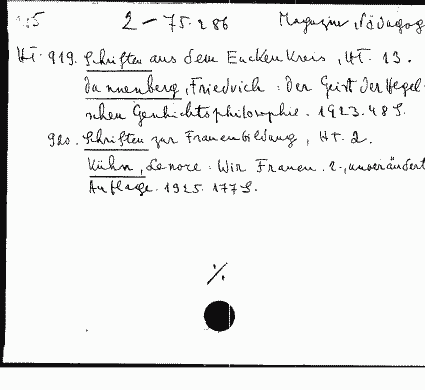 2 - 75.286 Magazin, Pädagog
Ht. 919. Schriften aus dem Euckenkreis, Ht. 13.
Dannenberg, Friedrich: Der Geist der Hegel-
schen Geschichtsphilosophie. 1923. 48 S.
920. Schriften zur Frauenbildung, Ht. 2.
Kühn, Lenore: Wir Frauen. 2., unverändert
Auflage. 1925. 177 S.
%